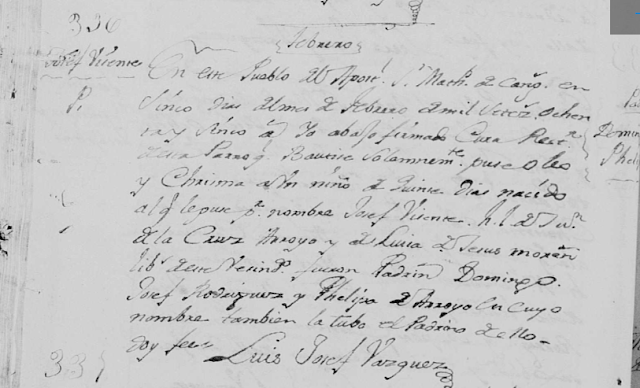 336
Febrero
Josef Vicente
En este Pueblo del Apost. Sn Math. de en
P.
Sinco dias del mes de Febrero de mil Setez. Ochen
ta y Sinco a. Yo abajo firmado Cura Rect.
de esta Parroq. Bautise Solamnemte. puse oleo
y Chrisma a Un niño de quinse dias nacido
al q. le puse pr. nombre Josef Vicente. h. l. de
de la Cruz Arroyo y de Luisa de Jesus
lib. de este Vecind. fueron Padrin. Domingo
Josef Rodriguez y Phelipa de Arroyo en cuyo
nombre tambien la tubo el Padrino de ello
doy fee
Luis Josef Vazquez
337
Domin
Pheli